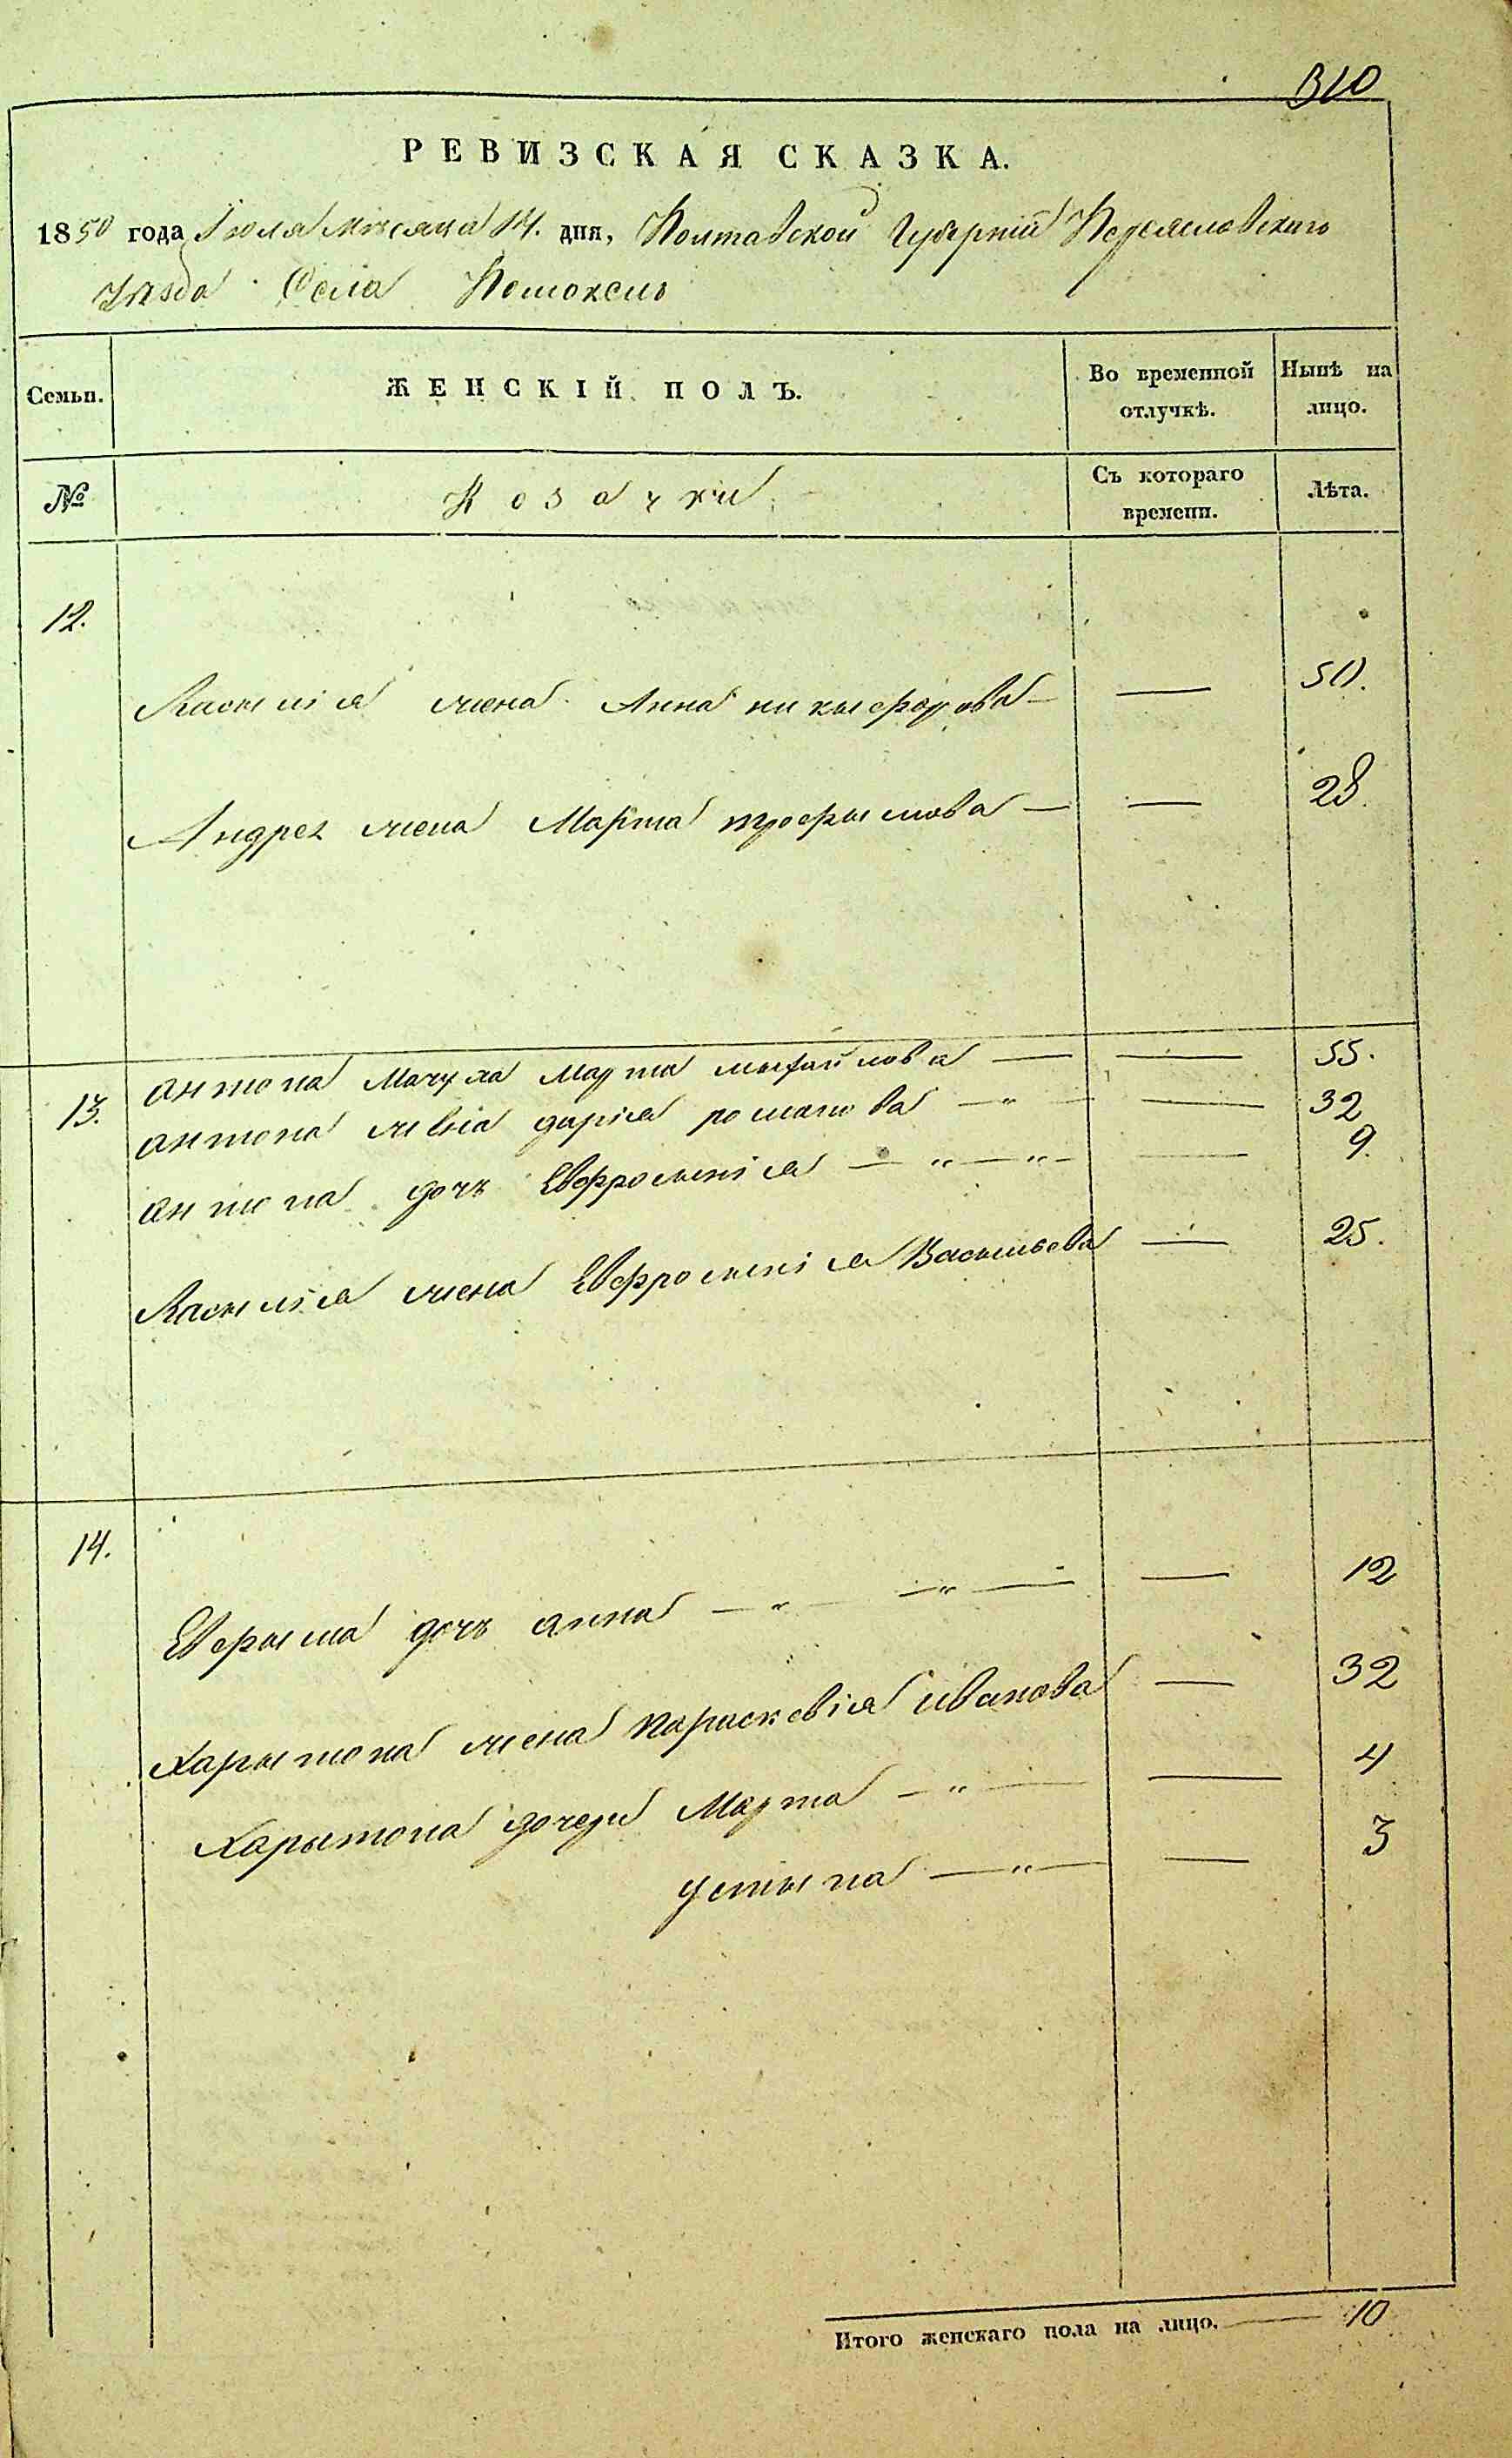 310
РЕВИЗСКАЯ СКАЗКА.
1850 года Іюля мѣсяца 14. дня, Полтавской Губерніи Переяславского
уѣзда Села Помоклъ
Семьи. ЖЕНСКІЙ ПОЛЪ. Во временной отлучкѣ. Нынѣ на лицо.
№ Козачки Съ котораго времени. Лѣта.
12.
Василія жена Анна никыфорова — — 50.
Андрея жена Марта трофымова — — 28.
13. антона мачуха Марта мыхайлова — — 55.
антона жена дарія романова — „ — — 32
антона дочь Евфросынія — „ — „ — — 9.
Василія жена Евфросынія Васыльева — 25.
14.
Ефыма дочь анна — „ — „ — — 12
Харытона жена параскевія иванова — 32
Харытона дочери Марта — „ — — 4
устына — „ — — 3
Итого женскаго пола на лицо. — 10